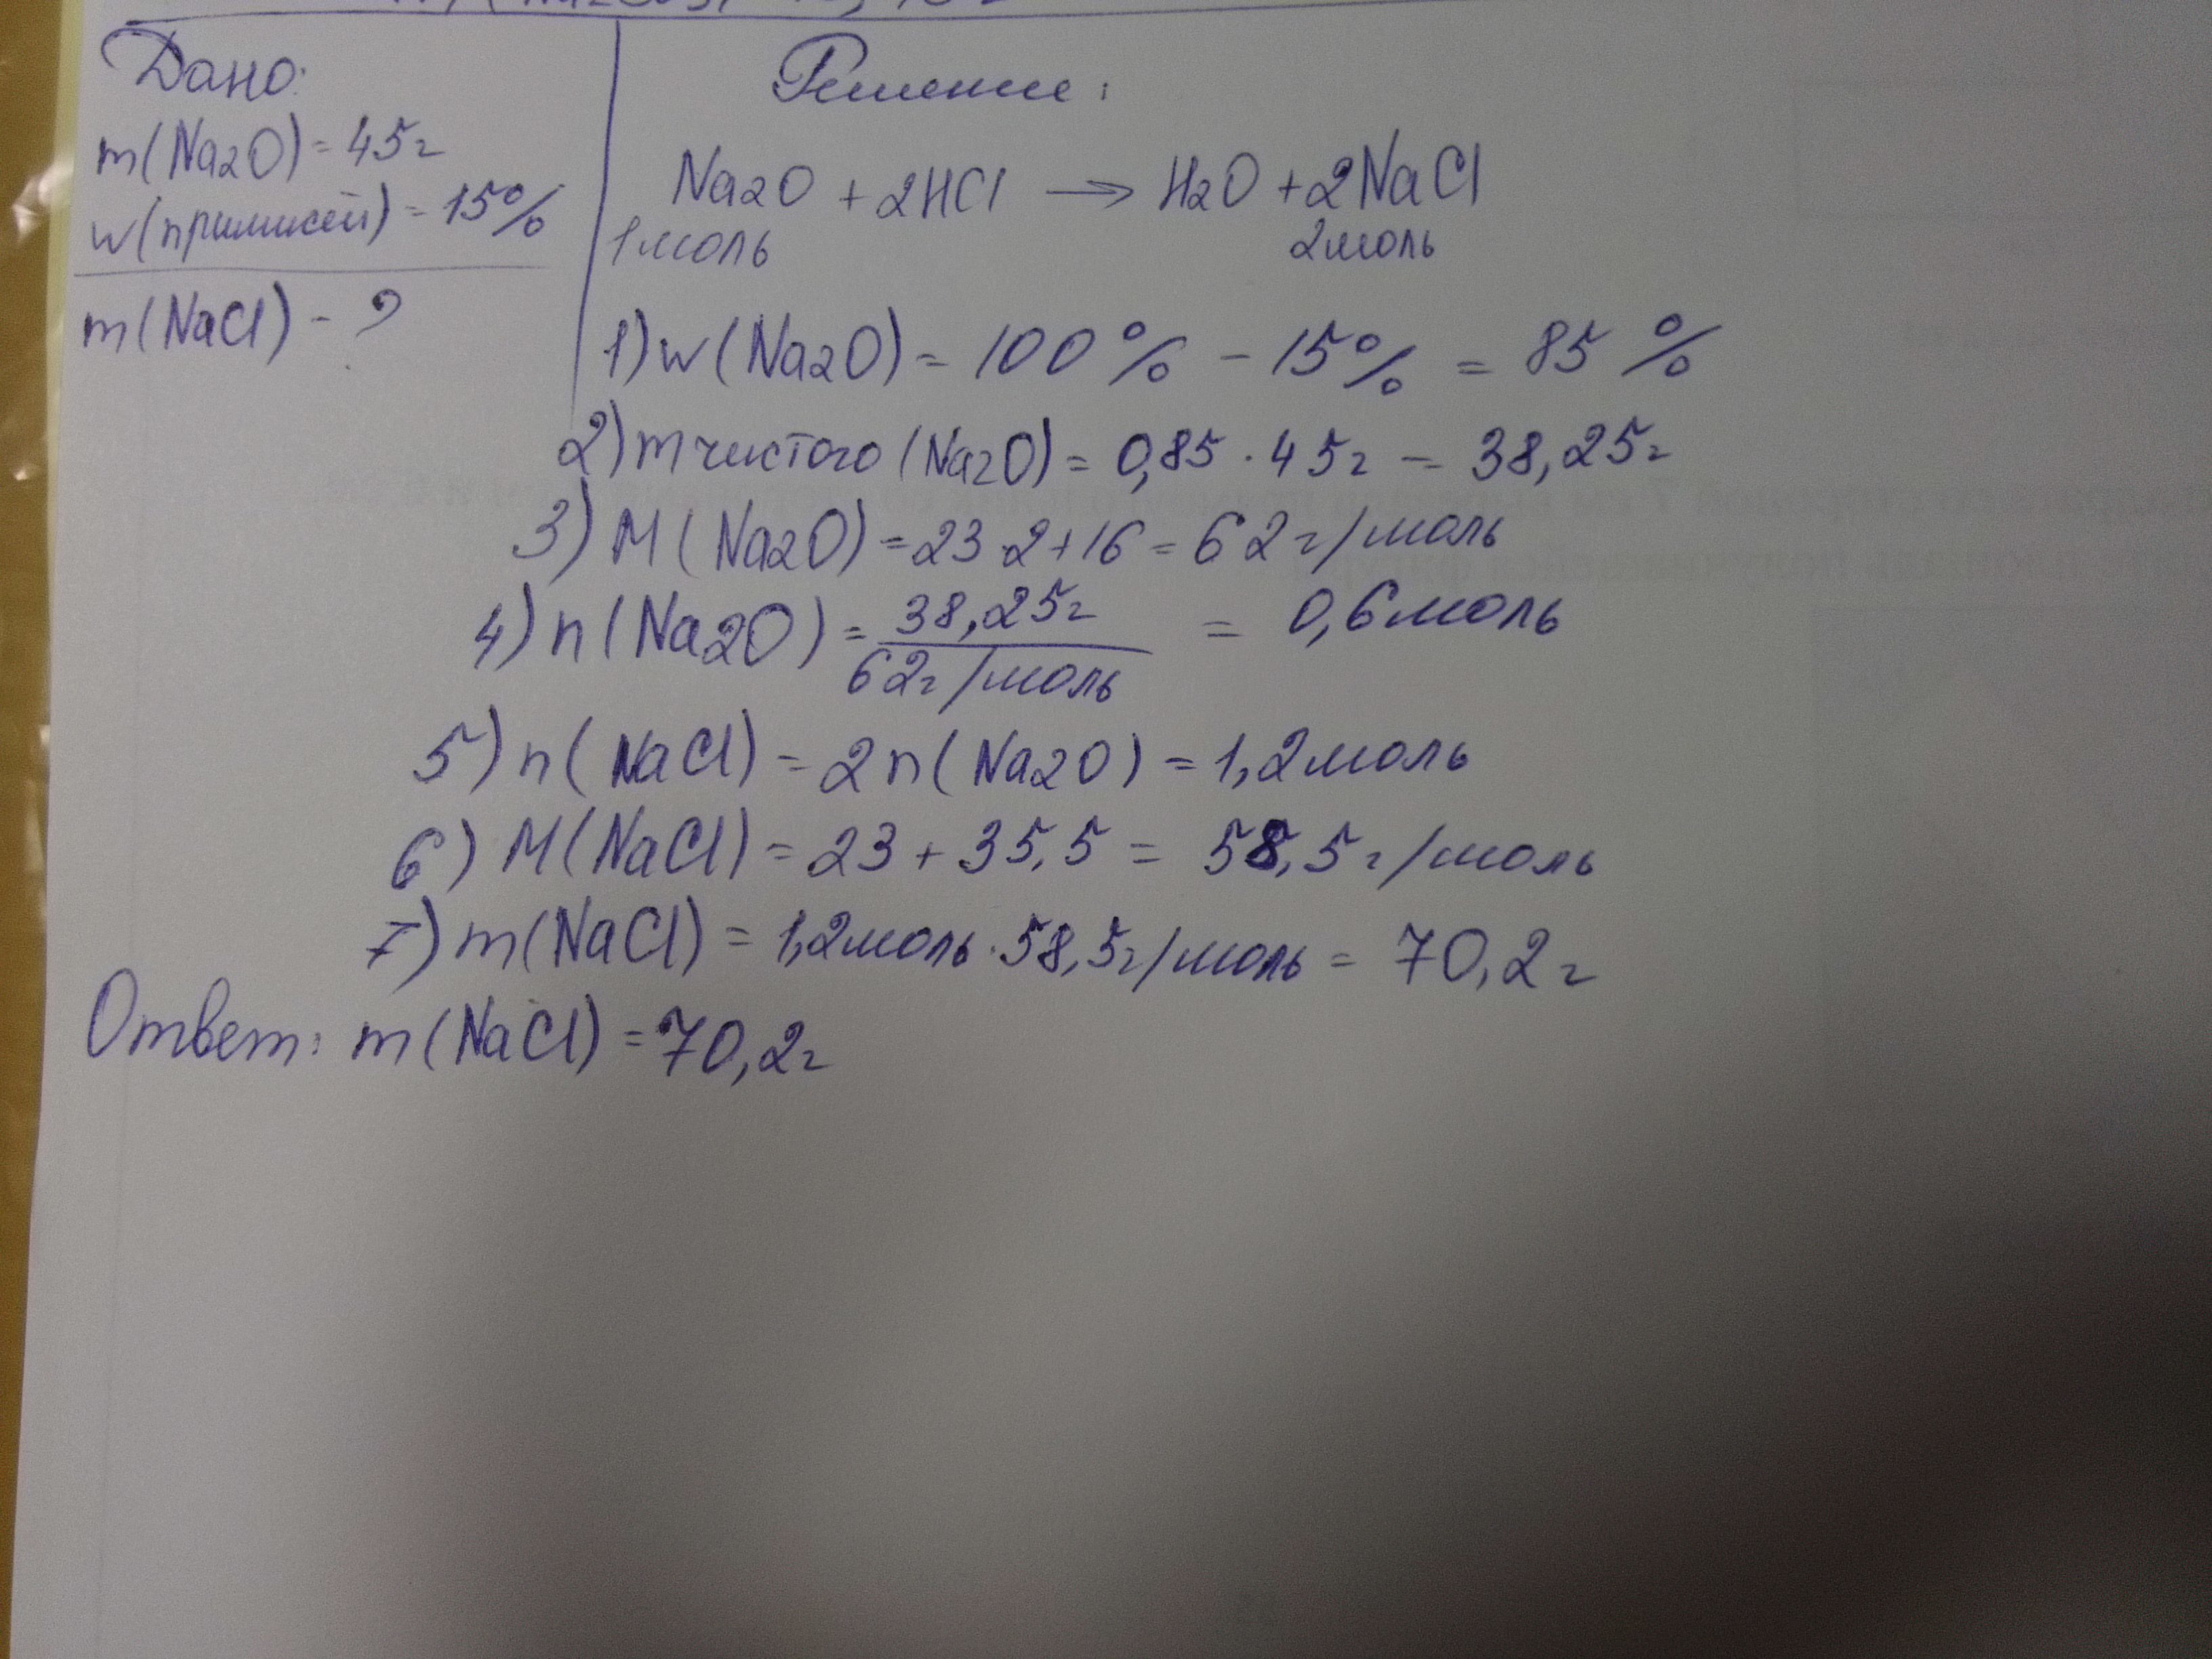 Дано:
m(Na2O) = 45г
w(примисей) = 15%
m(NaCl) - ?
Решение:
Na2O + 2HCl → H2O + 2NaCl
1моль 2моль
1) w(Na2O) = 100% - 15% = 85%
2) m чистого (Na2O) = 0,85 · 45г = 38,25г
3) M(Na2O) = 23·2+16 = 62г/моль
4) n(Na2O) = 38,25г / 62г/моль = 0,6моль
5) n(NaCl) = 2n(Na2O) = 1,2моль
6) M(NaCl) = 23 + 35,5 = 58,5г/моль
7) m(NaCl) = 1,2моль · 58,5г/моль = 70,2г
Ответ: m(NaCl) = 70,2г